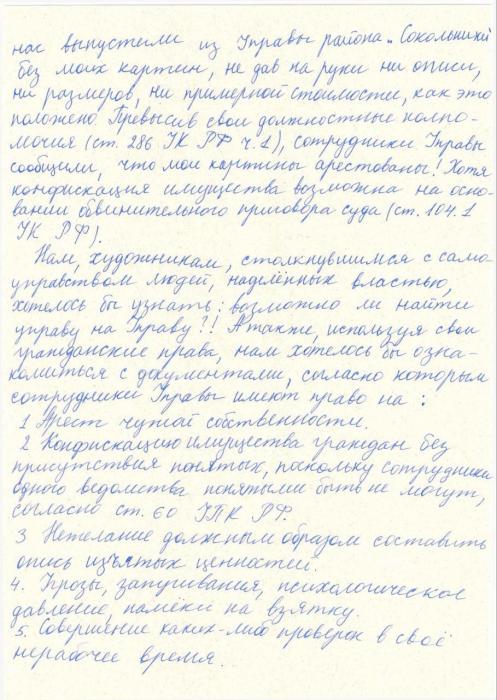 нас выпустили из Управы района "Сокольники
без моих картин, не дав на руки ни описи,
ни размеров, ни примерной стоимости, как это
положено. Превысив свои должностные полно-
мочия (ст. 286 УК РФ ч. 1), сотрудники Управы
сообщили, что мои картины арестованы! Хотя
конфискация имущества возможна на осно-
вании обвинительного приговора суда (ст. 104.1
УК РФ).
Нам, художникам, столкнувшимся с само
управством людей, наделённых властью,
хотелось бы узнать: возможно ли найти
управу на Управу?! А также, используя свои
гражданские права, нам хотелось бы озна-
комиться с документами, согласно которым
сотрудники Управы имеют право на:
1 Арест чужой собственности.
2 Конфискацию имущества граждан без
присутствия понятых, поскольку сотрудники
одного ведомства понятыми быть не могут,
согласно ст. 60 УПК РФ.
3 Нежелание должным образом составить
опись изъятых ценностей.
4. Угрозы, запугивания, психологическое
давление, намёки на взятку.
5. Совершение каких-либо проверок в своё
нерабочее время.